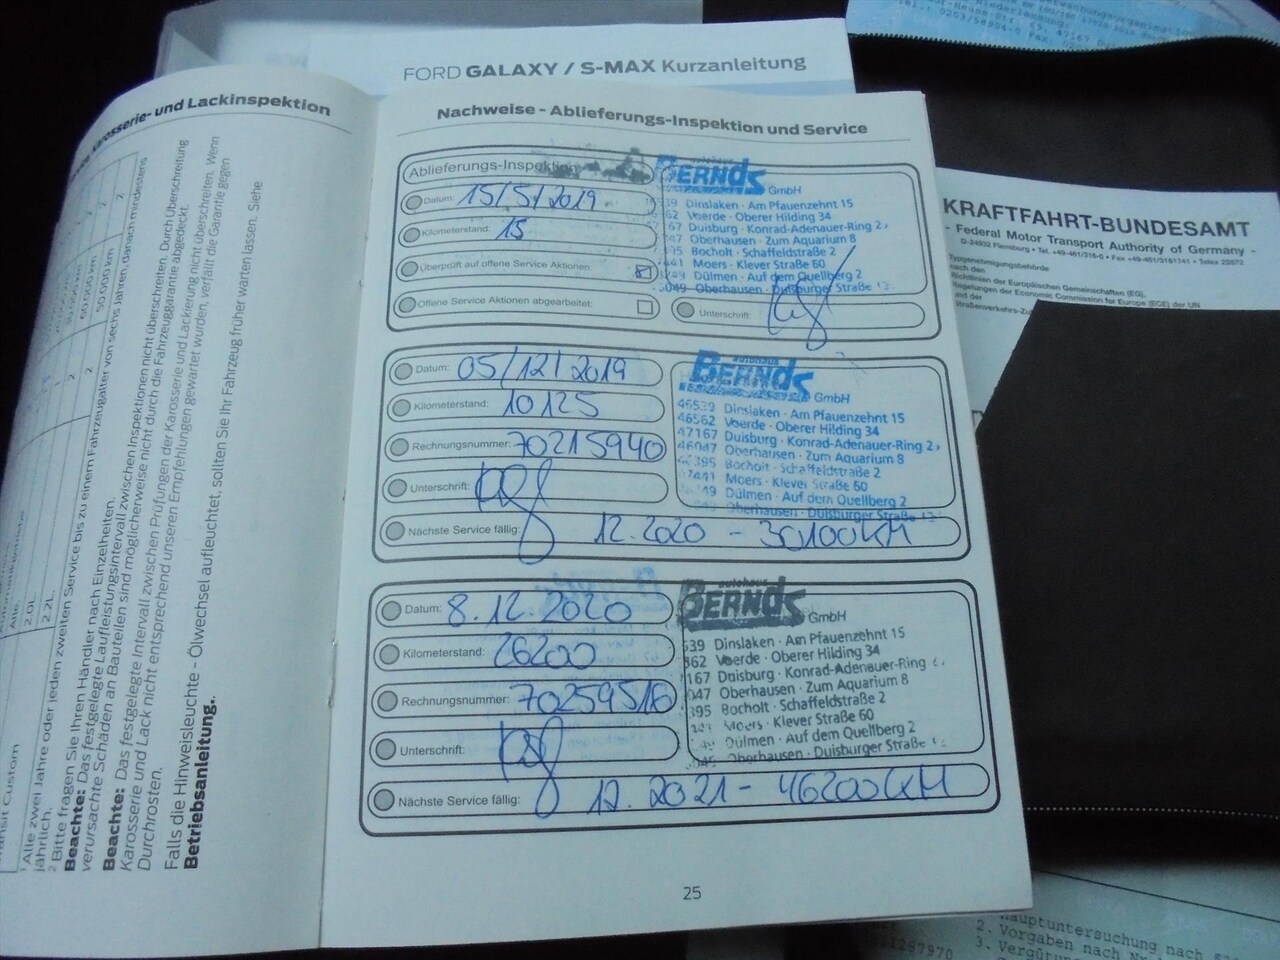 FORD GALAXY / S-MAX Kurzanleitung
Karosserie- und Lackinspektion
50.000 km
jährlich.
Alle zwei Jahre oder jeden zweiten Service bis zu einem Fahrzeugalter von sechs Jahren, danach mindestens
² Bitte fragen Sie Ihren Händler nach Einzelheiten.
Beachte: Das festgelegte Laufleistungsintervall zwischen Inspektionen nicht überschreiten. Durch Überschreitung
verursachte Schäden an Bauteilen sind möglicherweise nicht durch die Fahrzeuggarantie abgedeckt.
Beachte: Das festgelegte Intervall zwischen Prüfungen der Karosserie und Lackierung nicht überschreiten. Wenn
Karosserie und Lack nicht entsprechend unseren Empfehlungen gewartet wurden, verfällt die Garantie gegen
Durchrosten.
Falls die Hinweisleuchte - Ölwechsel aufleuchtet, sollten Sie Ihr Fahrzeug früher warten lassen. Siehe
Betriebsanleitung.
Nachweise - Ablieferungs-Inspektion und Service
Ablieferungs-Inspektion
Datum: 15/5/2019
Kilometerstand: 15
Überprüft auf offene Service Aktionen:
Offene Service Aktionen abgearbeitet:
autohaus
BERNds GmbH
Dinslaken · Am Pfauenzehnt 15
Voerde · Oberer Hilding 34
Duisburg · Konrad-Adenauer-Ring 2
Oberhausen · Zum Aquarium 8
Bocholt · Schaffeldstraße 2
Moers · Klever Straße 60
Dülmen · Auf dem Quellberg 2
Oberhausen · Duisburger Straße
Unterschrift:
Datum: 05/12/2019
Kilometerstand: 10125
Rechnungsnummer: 70215940
Unterschrift:
autohaus
BERNds GmbH
46539 Dinslaken · Am Pfauenzehnt 15
46562 Voerde · Oberer Hilding 34
47167 Duisburg · Konrad-Adenauer-Ring 2
46047 Oberhausen · Zum Aquarium 8
Bocholt · Schaffeldstraße 2
Moers · Klever Straße 60
Dülmen · Auf dem Quellberg 2
Oberhausen · Duisburger Straße
Nächste Service fällig: 12.2020 - 30100KM
Datum: 8.12.2020
Kilometerstand: 26200
Rechnungsnummer: 70259516
Unterschrift:
autohaus
BERNds GmbH
Dinslaken · Am Pfauenzehnt 15
Voerde · Oberer Hilding 34
Duisburg · Konrad-Adenauer-Ring
Oberhausen · Zum Aquarium 8
Bocholt · Schaffeldstraße 2
Moers · Klever Straße 60
Dülmen · Auf dem Quellberg 2
Oberhausen · Duisburger Straße
Nächste Service fällig: 12.2021 - 46200KM
25
KRAFTFAHRT-BUNDESAMT
- Federal Motor Transport Authority of Germany -
Typgenehmigungsbehörde
nach den
Richtlinien der Europäischen Gemeinschaften (EG),
Regelungen der Economic Commission for Europe (ECE) der UN
und der
Hauptuntersuchung nach
2. Vorgaben nach